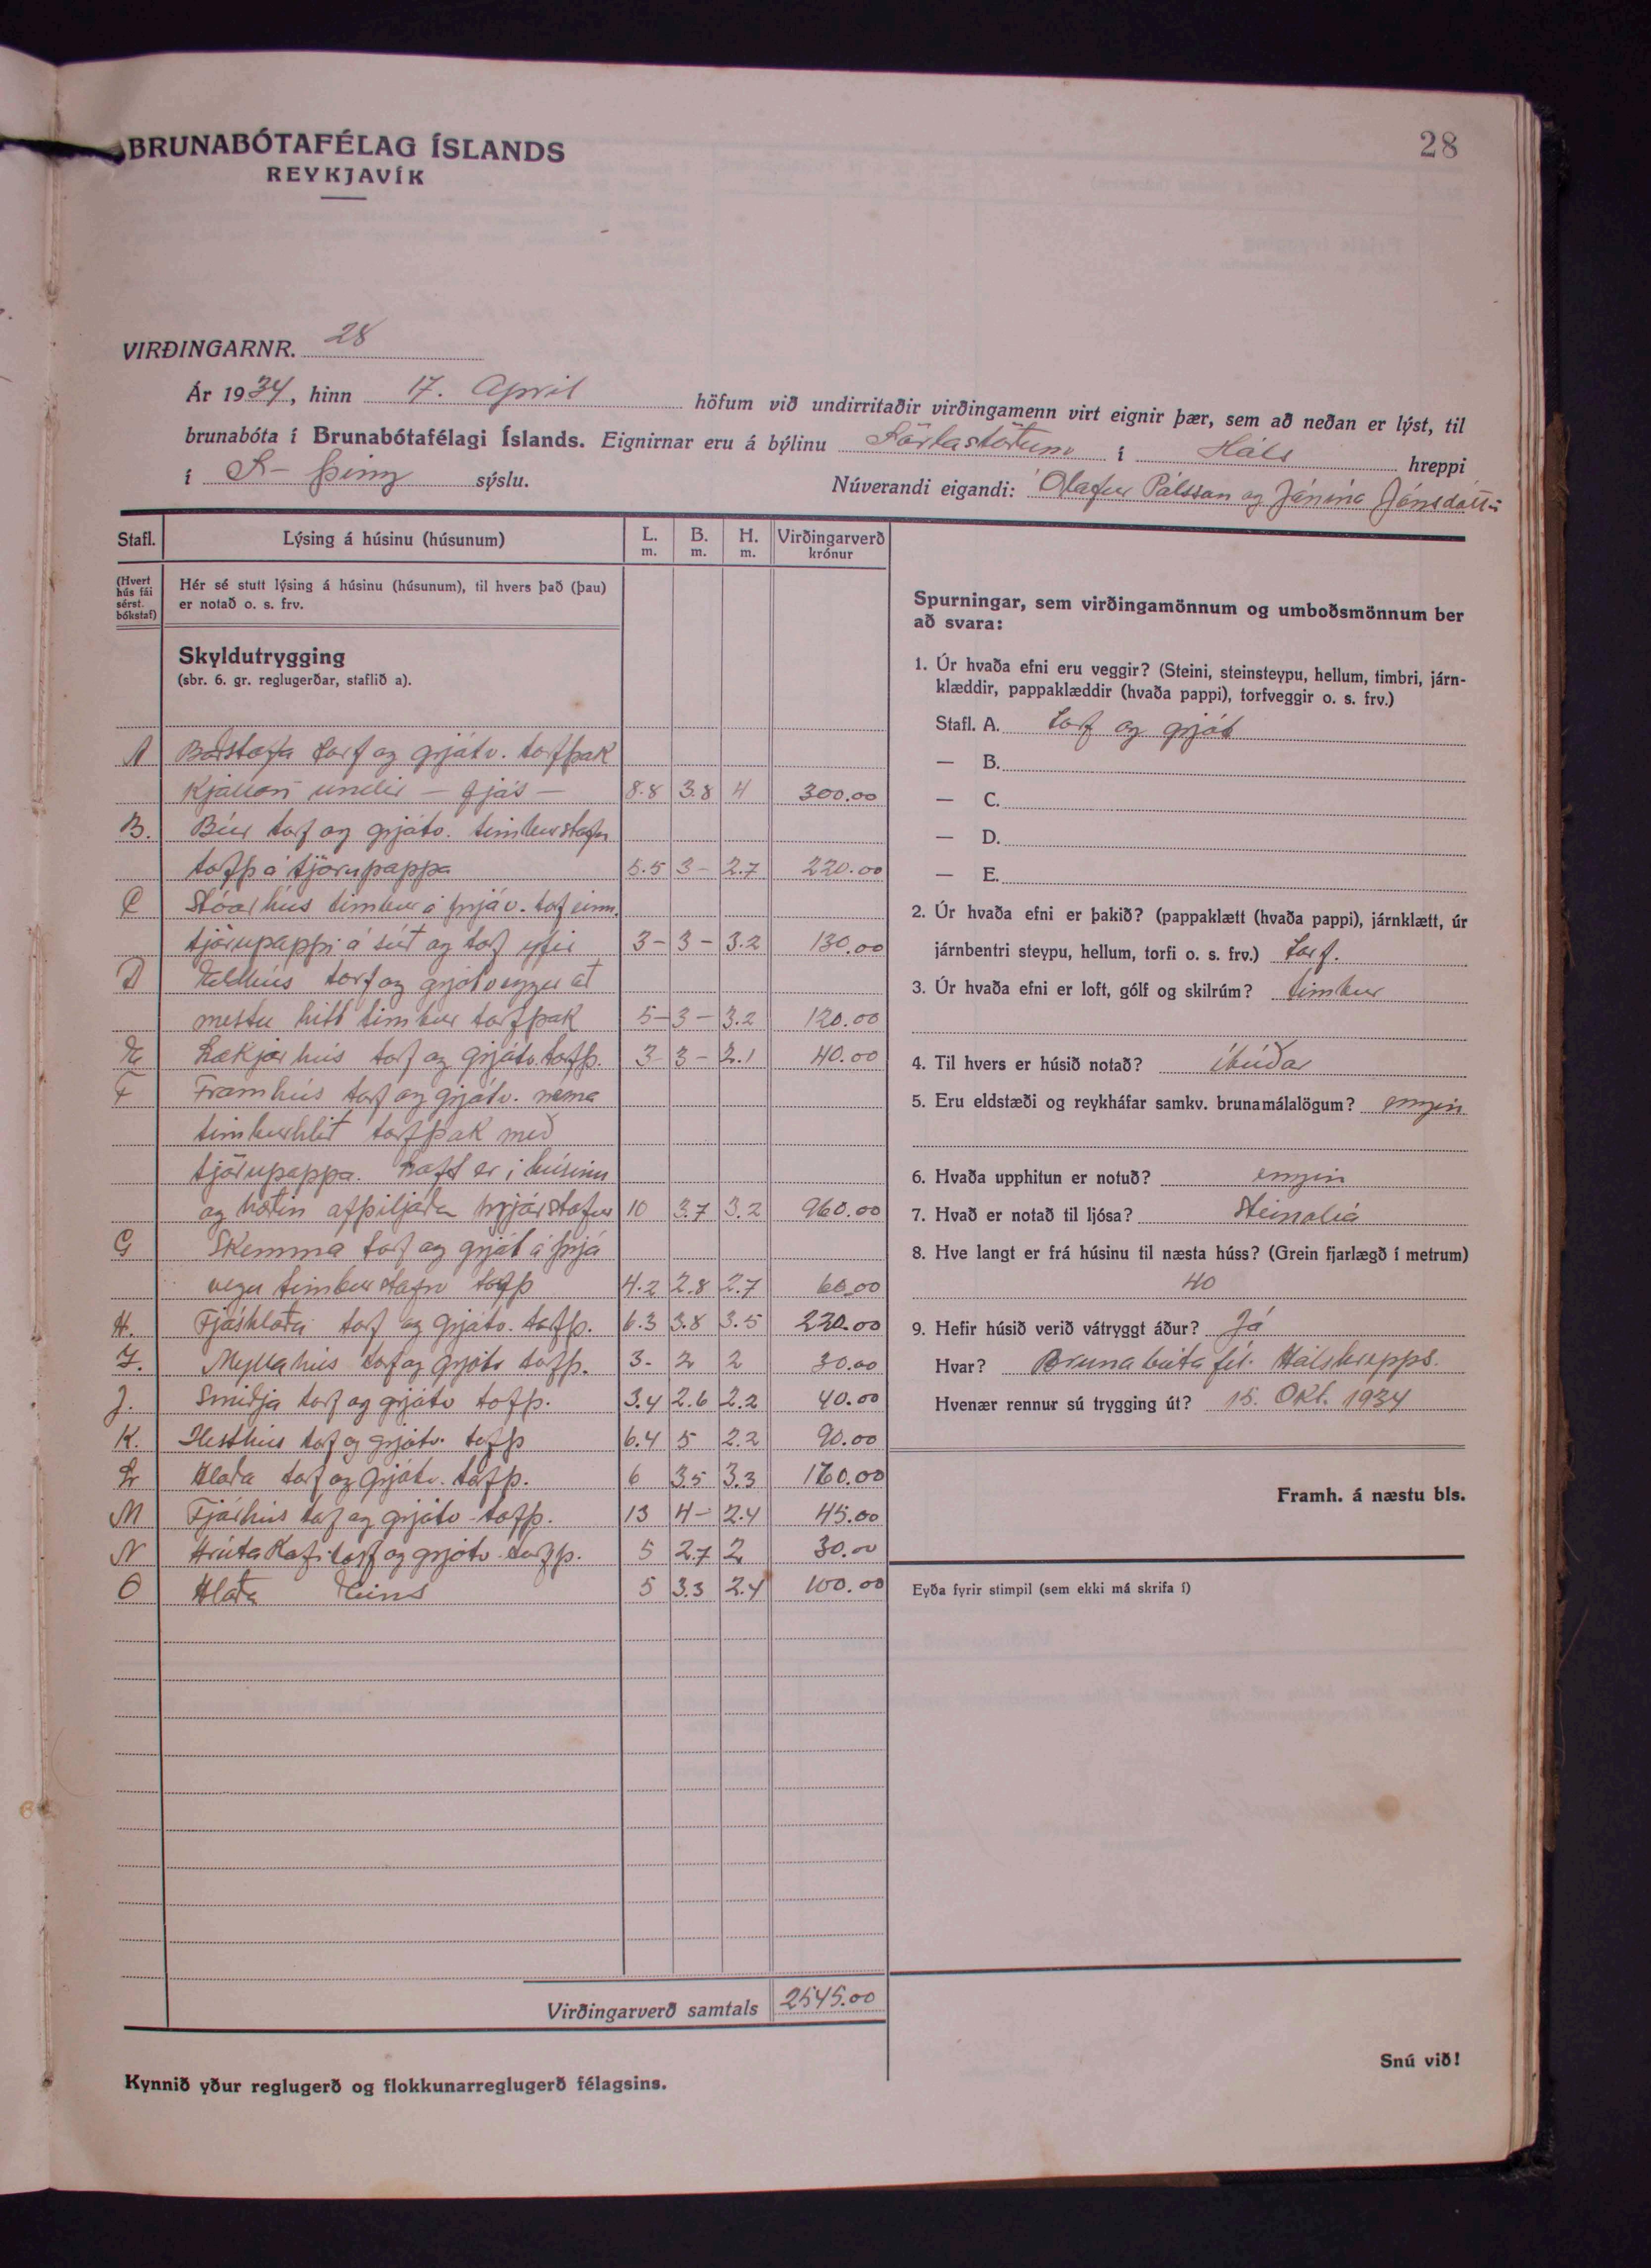 28
BRUNABÓTAFÉLAG ÍSLANDS
REYKJAVÍK
VIRÐINGARNR. 28
Ár 1934, hinn 17. April höfum við undirritaðir virðingamenn virt eignir þær, sem að neðan er lýst, til
brunabóta í Brunabótafélagi Íslands. Eignirnar eru á býlinu Sörlastöðum í Háls hreppi
í S-Þing sýslu. Núverandi eigandi: Ólafur Pálsson og Jónína Jónsdóttir
Stafl. Lýsing á húsinu (húsunum) L. m. B. m. H. m. Virðingarverð krónur
(Hvert hús fái sérst. bókstaf)
Hér sé stutt lýsing á húsinu (húsunum), til hvers það (þau)
er notað o. s. frv.
Skyldutrygging
(sbr. 6. gr. reglugerðar, staflið a).
A Baðstofa torf og grjótv. torfþak
kjallari undir - fjós - 8.8 3.8 4 300.00
B. Búr torf og grjótv. timburstafn
torfþ á tjörupappa 5.5 3- 2.7 220.00
C Stóarhús timbur á þrjá v. torf einn.
tjörupappi á súð og torf yfir 3- 3- 3.2 130.00
D Eldhús torf og grjótveggur að
mestu hitt timbur torfþak 5- 3- 3.2 120.00
E Lækjarhús torf og grjótv. torfþ. 3- 3- 2.1 40.00
F Framhús torf og grjótv. nema
timburhlið torfþak með
tjörupappa. Loft er í húsinu
og hólfin afþiljaðar stofur 10 3.7 3.2 960.00
G Skemma torf og grjót á þrjá
vegu timburstafn torfþ 4.2 2.8 2.7 60.00
H. Fjóshlaða torf og grjótv. torfþ. 6.3 3.8 3.5 220.00
I. Mylluhús torf og grjótv torfþ. 3- 2 2 30.00
J. Smiðja torf og grjótv torfþ. 3.4 2.6 2.2 40.00
K. Hesthús torf og grjótv. torfþ 6.4 5 2.2 90.00
L Hlaða torf og grjótv. torfþ. 6 3.5 3.3 160.00
M Fjárhús torf og grjótv - torfþ. 13 4- 2.4 45.00
N Hrútakofi torf og grjótv. torfþ. 5 2.7 2 30.00
O Hlaða Eins 5 3.3 2.4 100.00
Virðingarverð samtals 2545.00
Kynnið yður reglugerð og flokkunarreglugerð félagsins.
Spurningar, sem virðingamönnum og umboðsmönnum ber
að svara:
1. Úr hvaða efni eru veggir? (Steini, steinsteypu, hellum, timbri, járn-
klæddir, pappaklæddir (hvaða pappi), torfveggir o. s. frv.)
Stafl. A. torf og grjót
— B.
— C.
— D.
— E.
2. Úr hvaða efni er þakið? (pappaklætt (hvaða pappi), járnklætt, úr
járnbentri steypu, hellum, torfi o. s. frv.) torf.
3. Úr hvaða efni er loft, gólf og skilrúm? timbur
4. Til hvers er húsið notað? íbúðar
5. Eru eldstæði og reykháfar samkv. brunamálalögum? engin
6. Hvaða upphitun er notuð? engin
7. Hvað er notað til ljósa? Steinolía
8. Hve langt er frá húsinu til næsta húss? (Grein fjarlægð í metrum)
40
9. Hefir húsið verið vátryggt áður? Já
Hvar? Brunabótafél. Hálshrepps.
Hvenær rennur sú trygging út? 15. Okt. 1934
Framh. á næstu bls.
Eyða fyrir stimpil (sem ekki má skrifa í)
Snú við!